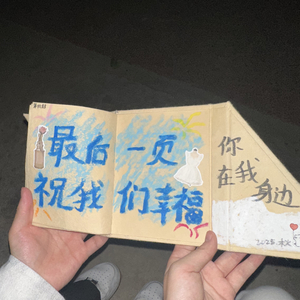 最后一页
祝我们幸福
你
在我
身边
2025.秋